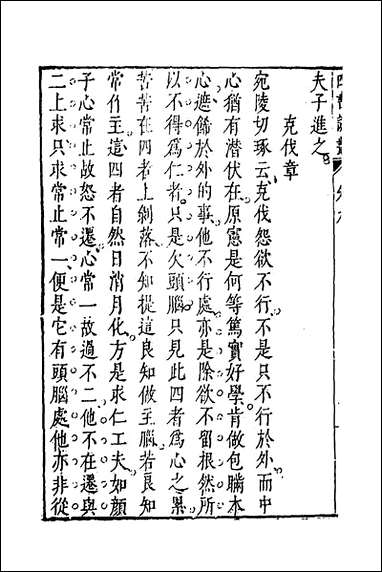 夫子進之
克伐章
宛陵切琢云克伐怨欲不行不是只不行於外而中
心猶有潜伏在原憲是何等篤實好學肯做包瞞本
心遮飾於外的事他不行處亦是除欲不留根然所
以不得爲仁者只是欠頭腦只見此四者爲心之累
苦苦在四者上剝落不知從這良知做主腦若良知
常作主這四者自然日消月化方是求仁工夫如顔
子心常止故怒不遷心常一故過不二他不在遷與
二上求只求常止常一便是它有頭腦處他亦非從